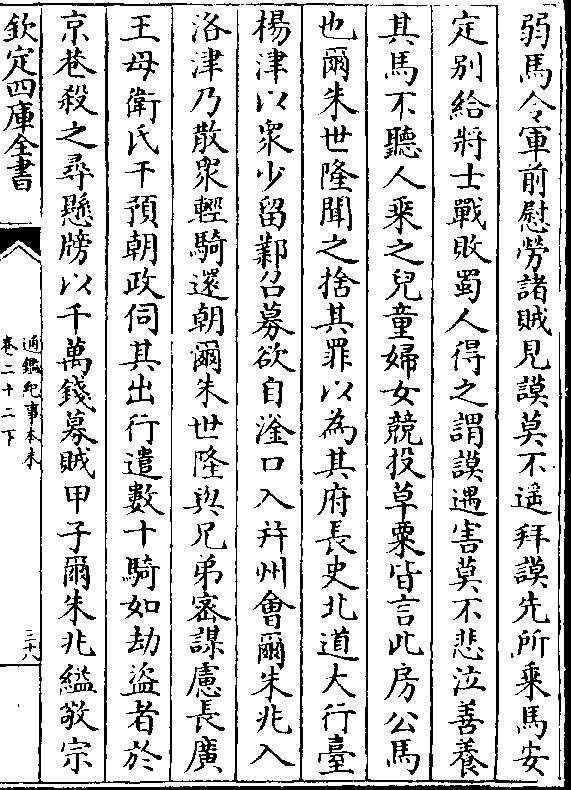 弱馬令軍前慰勞諸賊見謨莫不遥拜謨先所乘馬安
定别給將士戰敗蜀人得之謂謨遇害莫不悲泣善養
其馬不聽人乘之兒童婦女競投草粟皆言此房公馬
也爾朱世隆聞之捨其罪以為其府長史北道大行臺
楊津以衆少留鄴召募欲自滏口入并州會爾朱兆入
洛津乃散衆輕騎還朝爾朱世隆與兄弟密謀慮長廣
王母衛氏干預朝政伺其出行遣數十騎如劫盗者於
京巷殺之尋懸牓以千萬錢募賊甲子爾朱兆縊敬宗
欽定四庫全書
通鑑紀事本末
卷二十二下
三十八